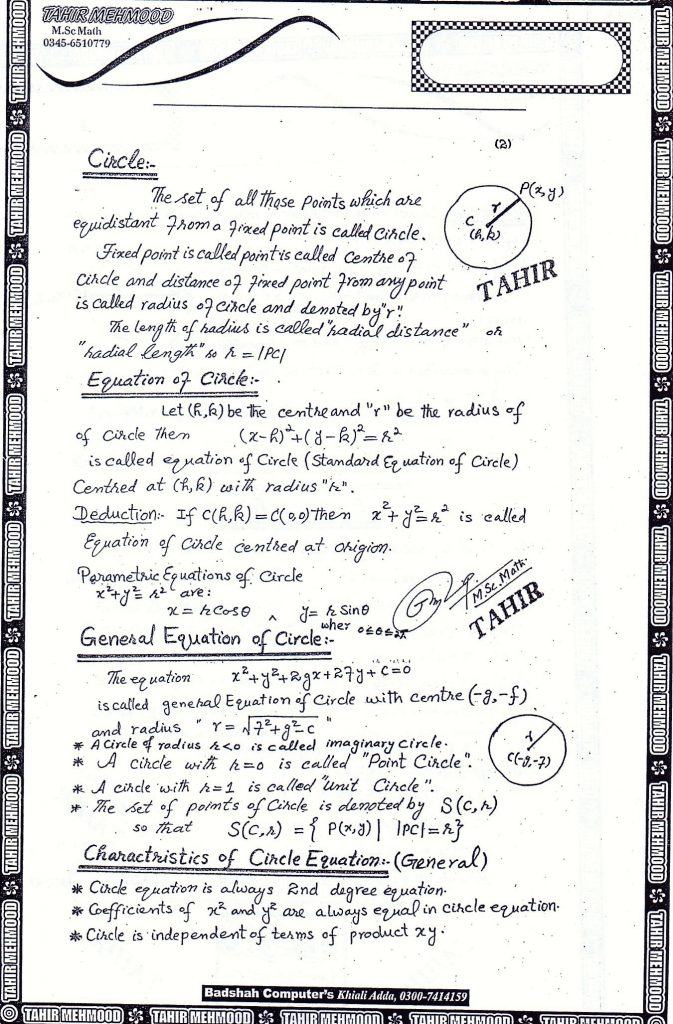 TAHIR MEHMOOD
M.Sc Math
0345-6510779
(2)
Circle:-
The set of all those Points which are
equidistant from a fixed point is called circle.
Fixed point is called point is called Centre of
circle and distance of fixed point from any point
is called radius of circle and denoted by "r".
The length of radius is called "radial distance" or
"radial length" so r = |PC|
P(x,y)
r
C
(h,k)
TAHIR
Equation of Circle:-
Let (h,k) be the centre and "r" be the radius of
of circle then (x-h)²+(y-k)²=r²
is called equation of Circle (Standard Equation of Circle)
Centred at (h,k) with radius "r".
Deduction:- If C(h,k)=C(0,0) then x²+y²=r² is called
Equation of Circle centred at origion.
Parametric Equations of Circle
x²+y²=r² are:
x = r Cosθ ∧ y = r Sinθ
wher 0≤θ≤2π
M.Sc. Math
TAHIR
General Equation of Circle:-
The equation x²+y²+2gx+2fy+c=0
is called general Equation of Circle with centre (-g,-f)
and radius " r = √f²+g²-c "
* A Circle of radius r<0 is called imaginary circle.
* A circle with r=0 is called "Point Circle".
* A circle with r=1 is called "Unit Circle".
* The set of points of Circle is denoted by S(C,r)
so that S(C,r) = { P(x,y) | |PC|=r}
r
C(-g,-f)
Charactristics of Circle Equation:- (General)
* Circle equation is always 2nd degree equation.
* Coefficients of x² and y² are always equal in circle equation.
* Circle is independent of terms of product xy.
Badshah Computer's Khiali Adda, 0300-7414159
TAHIR MEHMOOD TAHIR MEHMOOD TAHIR MEHMOOD TAHIR MEHMOOD TAHIR MEHMOOD
TAHIR MEHMOOD TAHIR MEHMOOD TAHIR MEHMOOD TAHIR MEHMOOD TAHIR MEHMOOD TAHIR MEHMOOD TAHIR MEHMOOD TAHIR MEHMOOD
TAHIR MEHMOOD TAHIR MEHMOOD TAHIR MEHMOOD TAHIR MEHMOOD TAHIR MEHMOOD TAHIR MEHMOOD TAHIR MEHMOOD TAHIR MEHMOOD